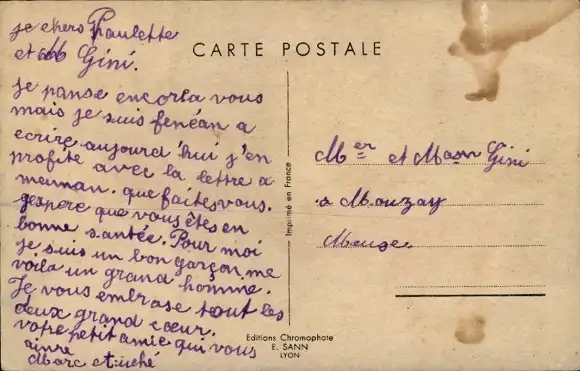 je chers Paulette
et M Gini.
je panse encorla vous
mais je suis fenéan a
ecrire aujourd'hui j'en
profite avec la lettre a
meman. que faites vous.
gespere que vous êtes en
bonne santée. Pour moi
je suis un bon garçon me
voila un grand homme.
Je vous embrase tout les
deux grand cœur.
votre petit amie qui vous
aime
Marc
CARTE POSTALE
Imprimé en France
Editions Chromophote
E. SANN
LYON
Mer et Mam Gini
a Mouzay
Meuse